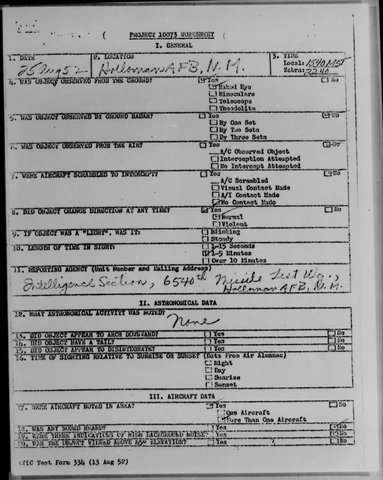 PROJECT 10073 WORKSHEET
I. GENERAL
1. DATE 2. LOCATION 3. TIME
25 Aug 52 Holloman AFB, N.M. Local: 1540 MST
Zebra: 2240
4. WAS OBJECT OBSERVED FROM THE GROUND? Yes No
Naked Eye
Binoculars
Telescope
Theodolite
5. WAS OBJECT OBSERVED BY GROUND RADAR? Yes No
By One Set
By Two Sets
By Three Sets
6. WAS OBJECT OBSERVED FROM THE AIR? Yes No
A/C Observed Object
Interception Attempted
No Intercept Attempted
7. WERE AIRCRAFT SCRAMBLED TO INTERCEPT? Yes No
A/C Scrambled
Visual Contact Made
A/I Contact Made
No Contact Made
8. DID OBJECT CHANGE DIRECTION AT ANY TIME? Yes No
Normal
Violent
9. IF OBJECT WAS A "LIGHT", WAS IT: Blinking
Steady
10. LENGTH OF TIME IN SIGHT: 1-15 Seconds
1-5 Minutes
Over 10 Minutes
11. REPORTING AGENCY (Unit Number and Mailing Address)
Intelligence Section, 6540th Missile Test Wg.,
Holloman AFB, N.M.
II. ASTRONOMICAL DATA
12. WHAT ASTRONOMICAL ACTIVITY WAS NOTED?
None
13. DID OBJECT APPEAR TO ARCH DOWNWARD? Yes No
14. DID OBJECT HAVE A TAIL? Yes No
15. DID OBJECT APPEAR TO DISINTEGRATE? Yes No
16. TIME OF SIGHTING RELATIVE TO SUNRISE OR SUNSET (Data From Air Almanac)
Night
Day
Sunrise
Sunset
III. AIRCRAFT DATA
17. WERE AIRCRAFT NOTED IN AREA? Yes No
One Aircraft
More Than One Aircraft
18. WAS ANY SOUND HEARD? Yes No
19. WERE THERE INDICATIONS OF HIGH BACKGROUND NOISE? Yes No
20. WAS THE OBJECT VIEWED ABOVE 45° ELEVATION? Yes No
ATIC Test Form 334 (13 Aug 52)